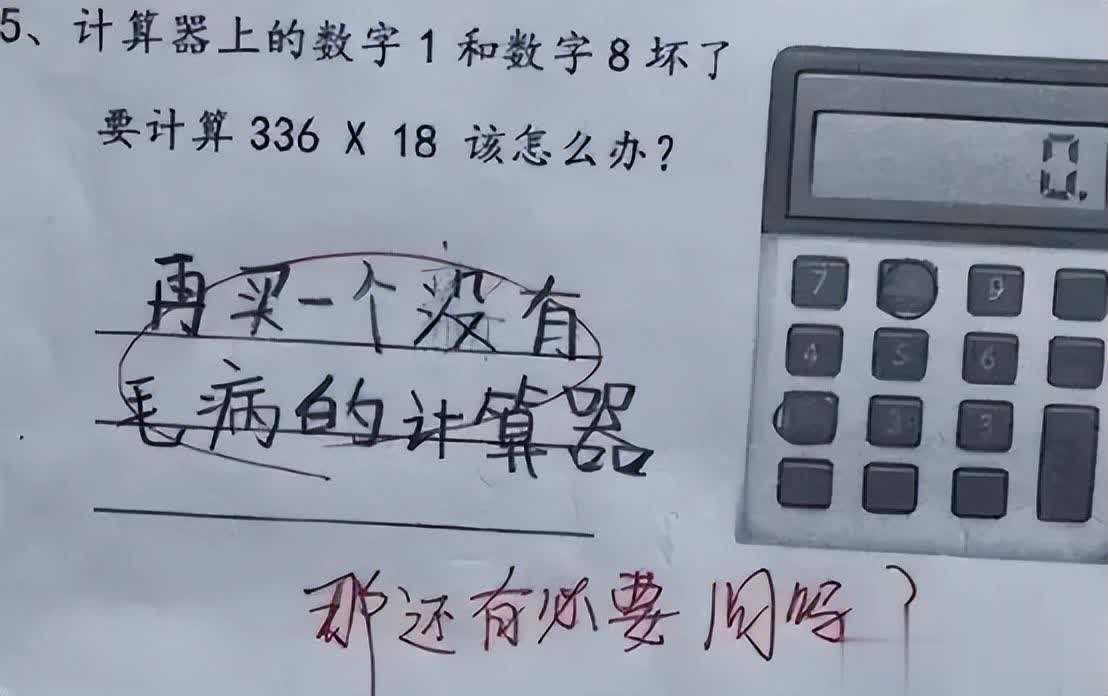 5、计算器上的数字1和数字8坏了
要计算336 X 18 该怎么办？
再买一个没有
毛病的计算器
那还有必要问吗？
0.
7 9
4 5 6
2 3